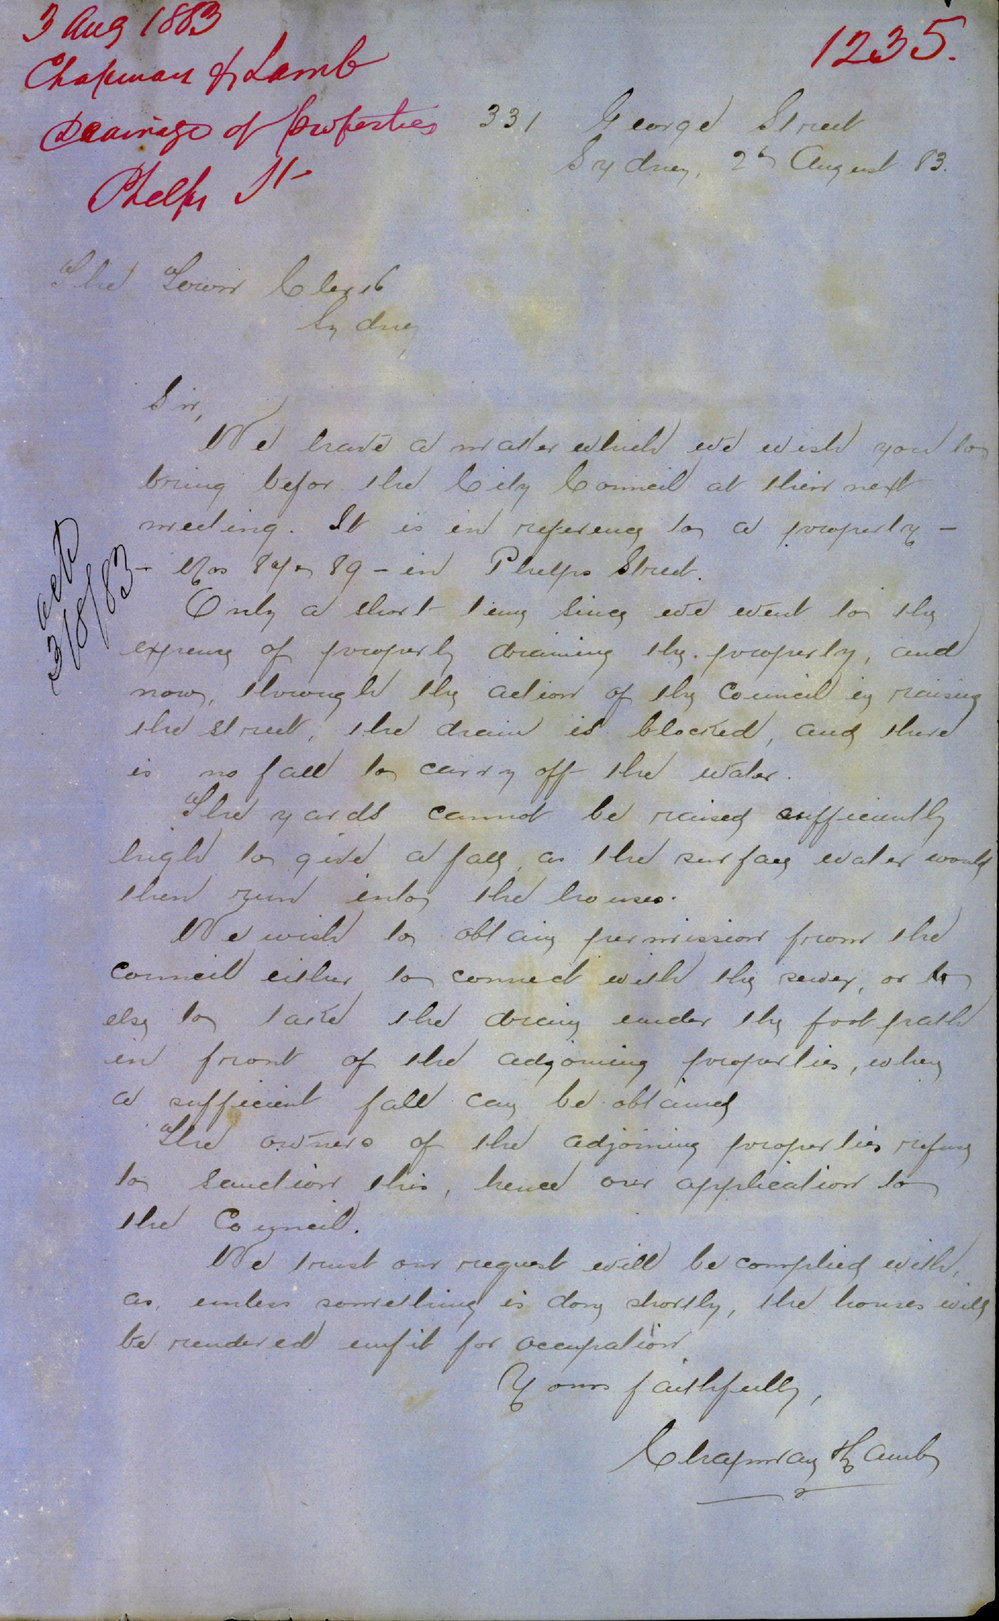 3 Aug 1883
Chapman & Lamb
Drainage of properties
Phelps St
1235.
331 George Street
Sydney, 2nd August 83.
The Town Clerk
Sydney
Sir,
We have a matter which we wish you to
bring befor the City Council at their next
meeting. It is in reference to a property –
– Nos 87 & 89 – in Phelps Street.
ackd
3/8/83
Only a short time since we went to the
expense of properly draining the property, and
now, through the action of the Council in raising
the street, the drain is blocked, and there
is no fall to carry off the water.
The yards cannot be raised sufficiently
high to give a fall, as the surface water would
then run into the houses.
We wish to obtain permission from the
Council either to connect with the sewer, or to
else to take the drain under the footpath
in front of the adjoining properties, when
a sufficient fall can be obtained
The owners of the adjoining properties refuse
to sanction this, hence our application to
the Council.
We trust our request will be complied with,
as, unless something is done shortly, the houses will
be rendered unfit for occupation
Yours faithfully,
Chapman & Lamb